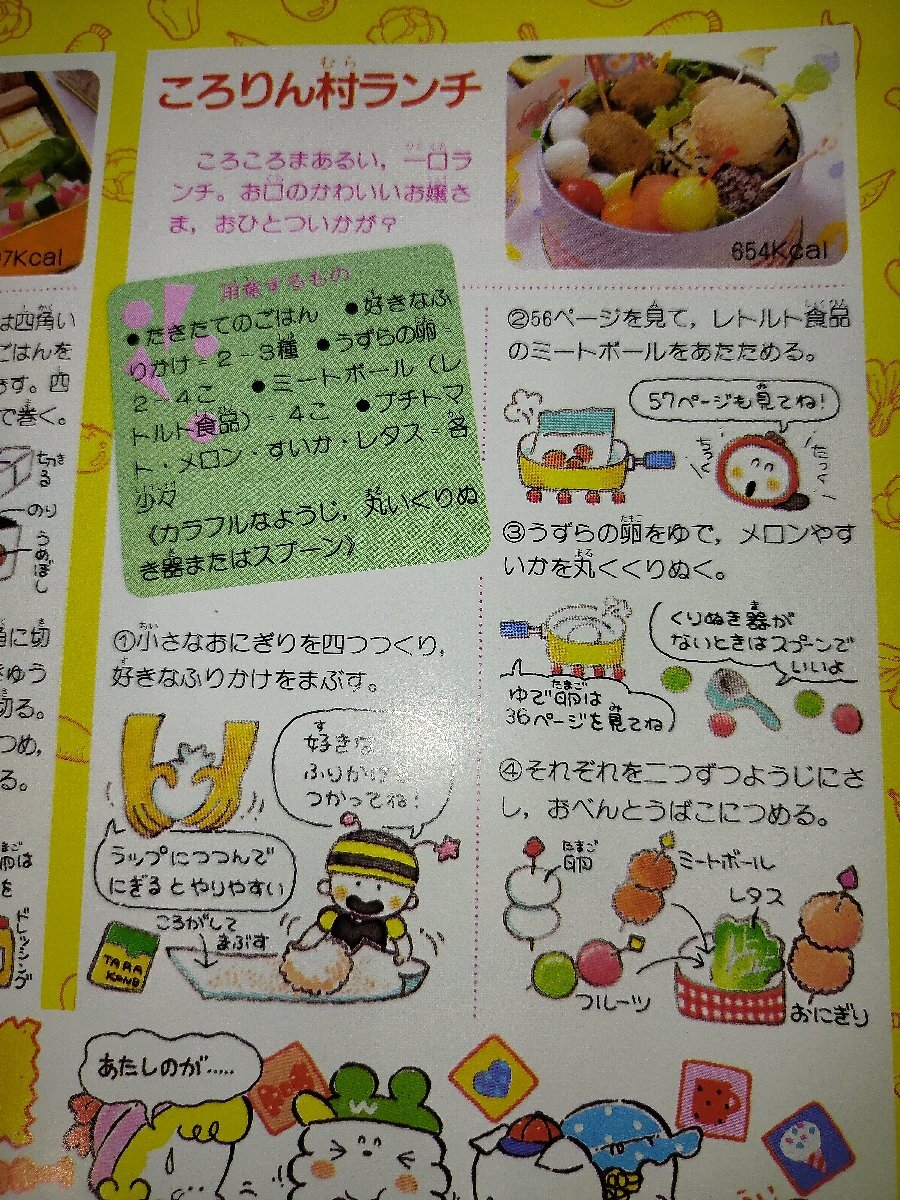 ころりん村ランチ
むら
ころころまあるい，一口ラ
ンチ。お口のかわいいお嬢さ
ま，おひとついかが？
654Kcal
7Kcal
用意するもの
●たきたてのごはん　●好きなふ
りかけ-2-3種　●うずらの卵-
2-4こ　●ミートボール（レ
トルト食品）　4こ　●プチトマ
ト・メロン・すいか・レタス-各
少々
《カラフルなようじ，丸いくりぬ
き器またはスプーン》
①小さなおにぎりを四つつくり，
好きなふりかけをまぶす。
好きな
ふりかけ
つかってね！
ラップにつつんで
にぎるとやりやすい
ころがして
まぶす
TARA
②56ページを見て，レトルト食品
のミートボールをあたためる。
57ページも見てね！
ちっく
たっく
③うずらの卵をゆで，メロンやす
いかを丸くくりぬく。
くりぬき器が
ないときはスプーンで
いいよ
ゆで卵は
36ページを見てね
④それぞれを二つずつようじにさ
し，おべんとうばこにつめる。
たまご
卵
ミートボール
レタス
フルーツ
おにぎり
は四角い
ごはんを
ます。四
で巻く。
切る
のり
うめぼし
に切
きゅう
切る。
つめ，
る。
卵は
を
ドレッシング
あたしのが.....